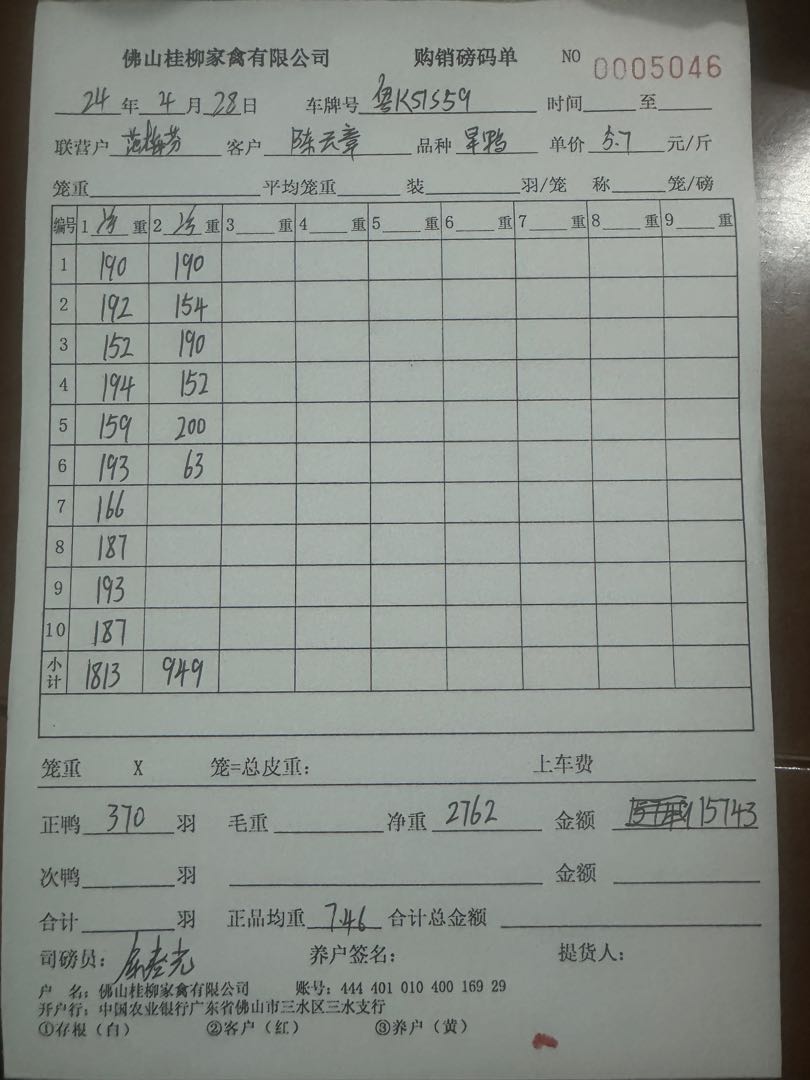 佛山桂柳家禽有限公司 购销磅码单 NO 0005046
24 年 4 月 28 日 车牌号 粤K51S59 时间____至____
联营户 范梅芬 客户 陈云章 品种 旱鸭 单价 5.7 元/斤
笼重____平均笼重____装____羽/笼 称____笼/磅
编号 1 净 重 2 净 重 3____重 4____重 5____重 6____重 7____重 8____重 9____重
1 190 190
2 192 154
3 152 190
4 194 152
5 159 200
6 193 63
7 166
8 187
9 193
10 187
小计 1813 949
笼重 X 笼=总皮重: 上车费
正鸭 370 羽 毛重____净重 2762 金额 15743
次鸭____羽 ____金额____
合计____羽 正品均重 7.46 合计总金额____
司磅员: 养户签名: 提货人:
户 名: 佛山桂柳家禽有限公司 账号: 444 401 010 400 169 29
开户行: 中国农业银行广东省佛山市三水区三水支行
①存根(白) ②客户(红) ③养户(黄)